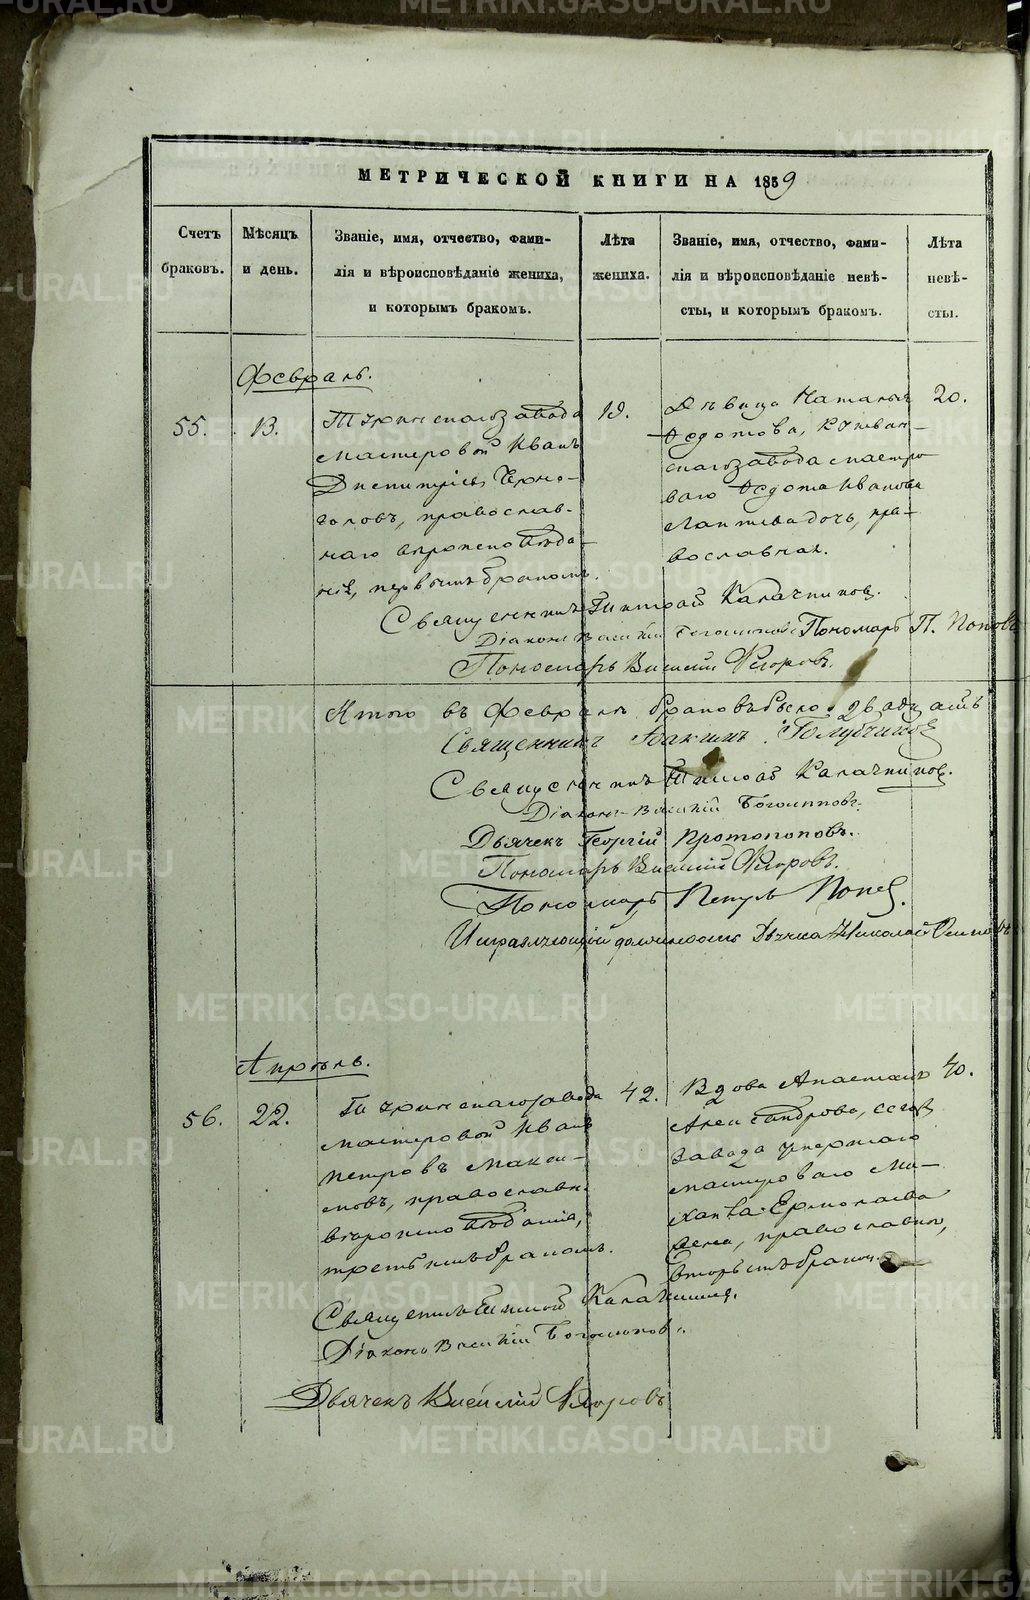 МЕТРИЧЕСКОЙ КНИГИ НА 1859
Счетъ браковъ.
Мѣсяцъ и день.
Званіе, имя, отчество, фами-
лія и вѣроисповѣданіе жениха,
и которымъ бракомъ.
Лѣта жениха.
Званіе, имя, отчество, фами-
лія и вѣроисповѣданіе невѣ-
сты, и которымъ бракомъ.
Лѣта невѣ-
сты.
Февраль.
55.
13.
Туринскаго завода
мастеровой Иванъ
Дмитріевъ Черно-
головъ, православ-
наго вѣроисповѣда-
нія, первымъ бракомъ.
19.
Дѣвица Наталья
Федотова, Кушвин-
скаго завода мастеро-
ваго Федота Иванова
Лаптева дочь, пра-
вославная.
20.
Священникъ Калачниковъ.
Діаконъ Василій Пономарь П. Поповъ
Пономарь Василій Флоровъ.
Итого въ Февралѣ браковъ было двадцать
Священникъ Іоакимъ
Священникъ Калачниковъ.
Діаконъ Василій
Дьячекъ Георгій Протопоповъ.
Пономарь Василій Флоровъ.
Пономарь Петръ Поповъ.
Исправляющій должность Дьячка Николай
Апрѣль.
56.
22.
Туринскаго завода
мастеровой Иванъ
Петровъ Макси-
мовъ, православн.
вѣроисповѣданія,
третьимъ бракомъ.
42.
Вдова Анастасія
Александрова, сего
завода умершаго
мастероваго Ми-
хаила Ермолаева
жена, православная,
вторымъ бракомъ.
40.
Священникъ Калачниковъ.
Діаконъ Василій
Дьячекъ Василій Флоровъ
METRIKI.GASO-URAL.RU